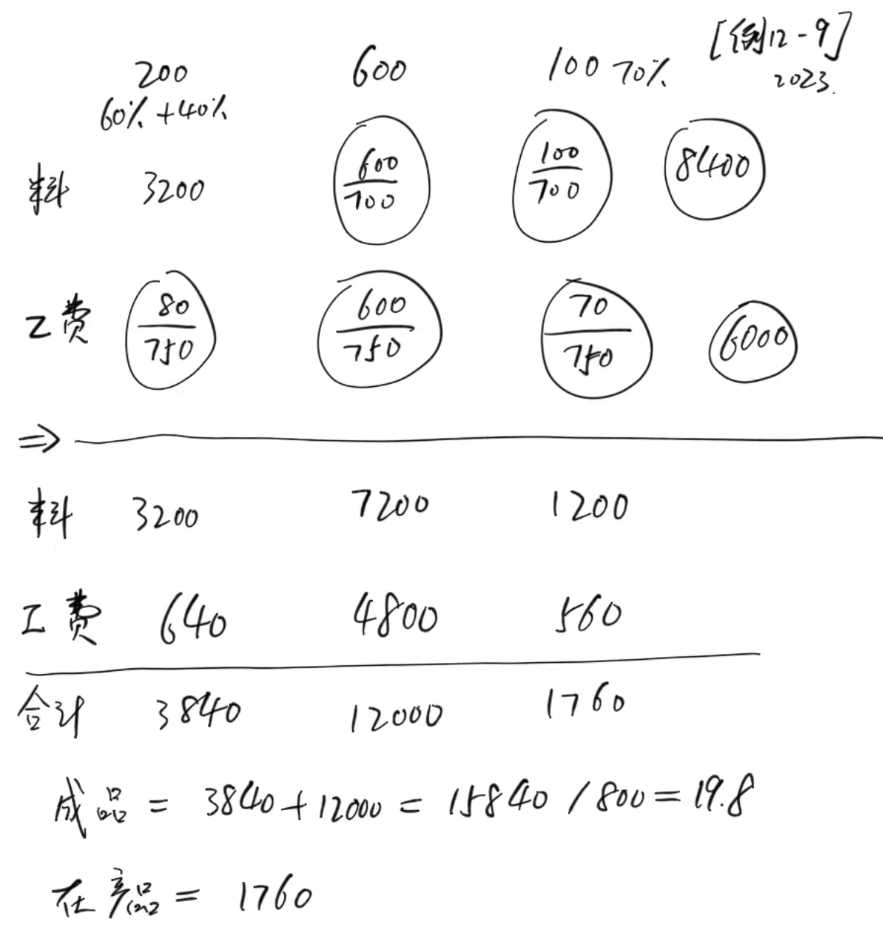 [例12-9]
200 600 100 70% 2023.
60%+40%
料 3200 600/700 100/700 8400
工费 80/750 600/750 70/750 6000
⇒
料 3200 7200 1200
工费 640 4800 560
合计 3840 12000 1760
成品 = 3840+12000 = 15840 /800 = 19.8
在产品 = 1760